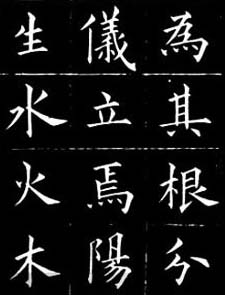 為其根分
儀立焉陽
生水火木